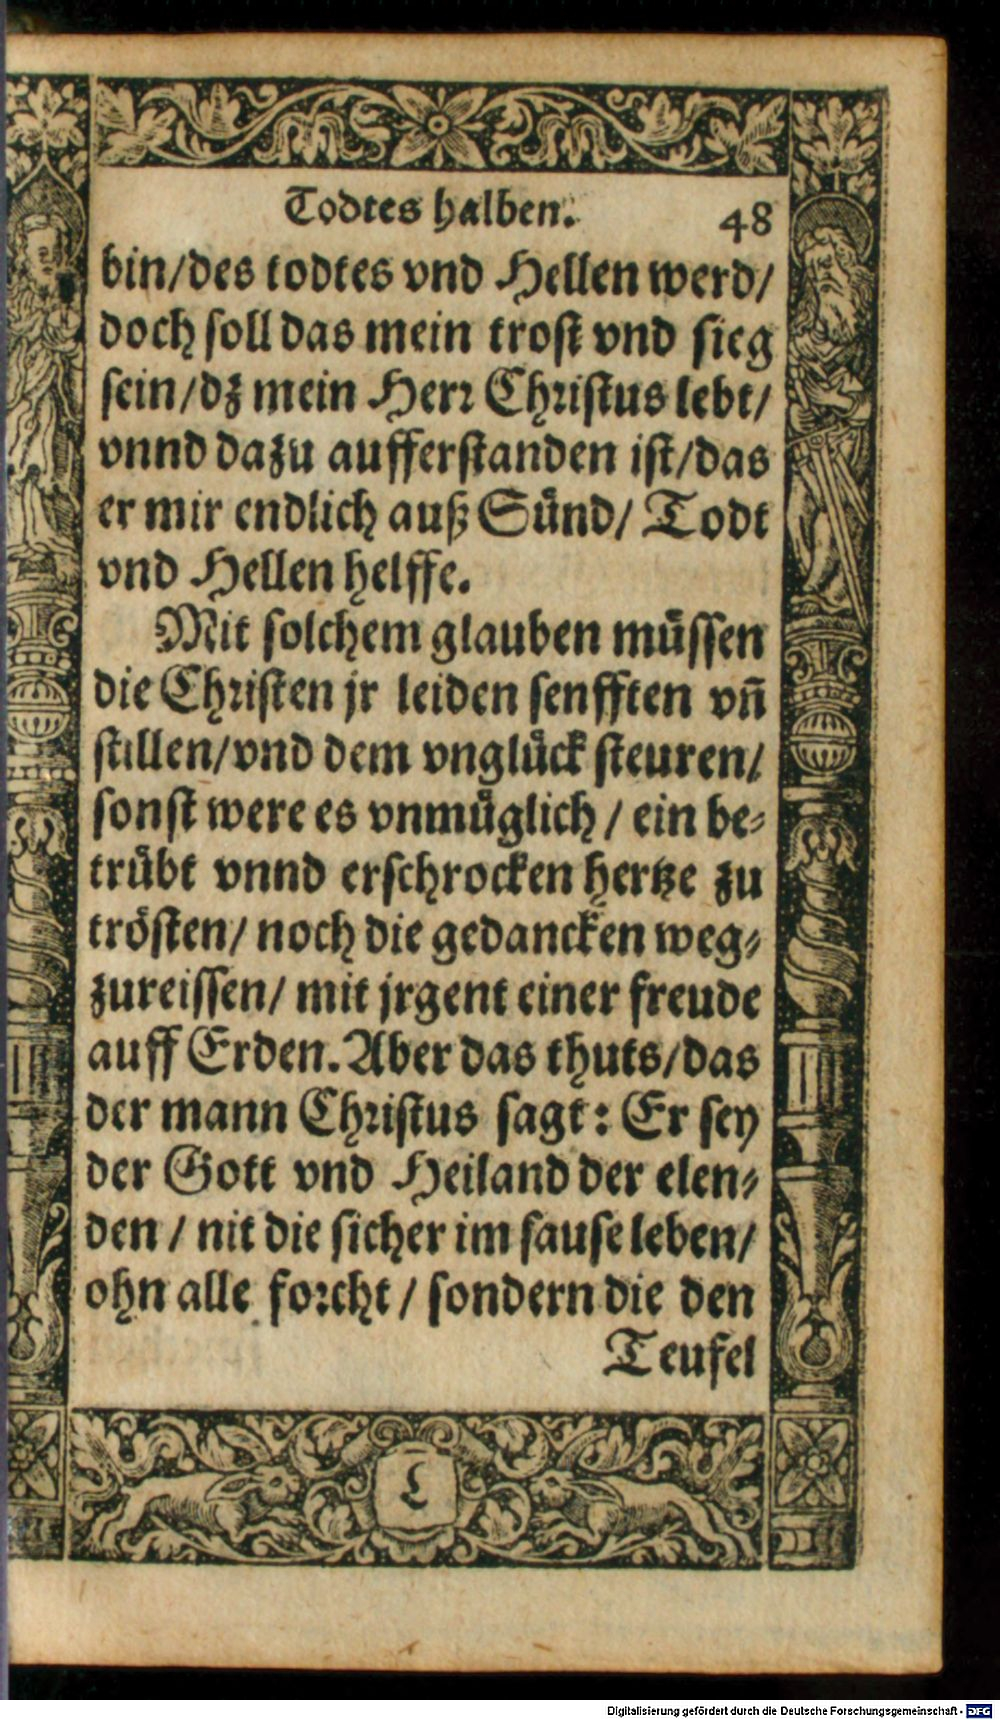 Todtes halben. 48
bin/des todtes vnd Hellen werd/
doch soll das mein trost vnd sieg
sein/dz mein Herr Christus lebt/
vnnd dazu aufferstanden ist/das
er mir endlich auß Sünd/ Todt
vnd Hellen helffe.
Mit solchem glauben müssen
die Christen jr leiden senfften vñ
stillen/vnd dem vnglück steuren/
sonst were es vnmüglich / ein be-
trübt vnnd erschrocken hertze zu
trösten/ noch die gedancken weg-
zureissen/ mit jrgent einer freude
auff Erden. Aber das thuts/das
der mann Christus sagt: Er sey
der Gott vnd Heiland der elen-
den / nit die sicher im sause leben/
ohn alle forcht / sondern die den
Teufel
Digitalisierung gefördert durch die Deutsche Forschungsgemeinschaft - DFG